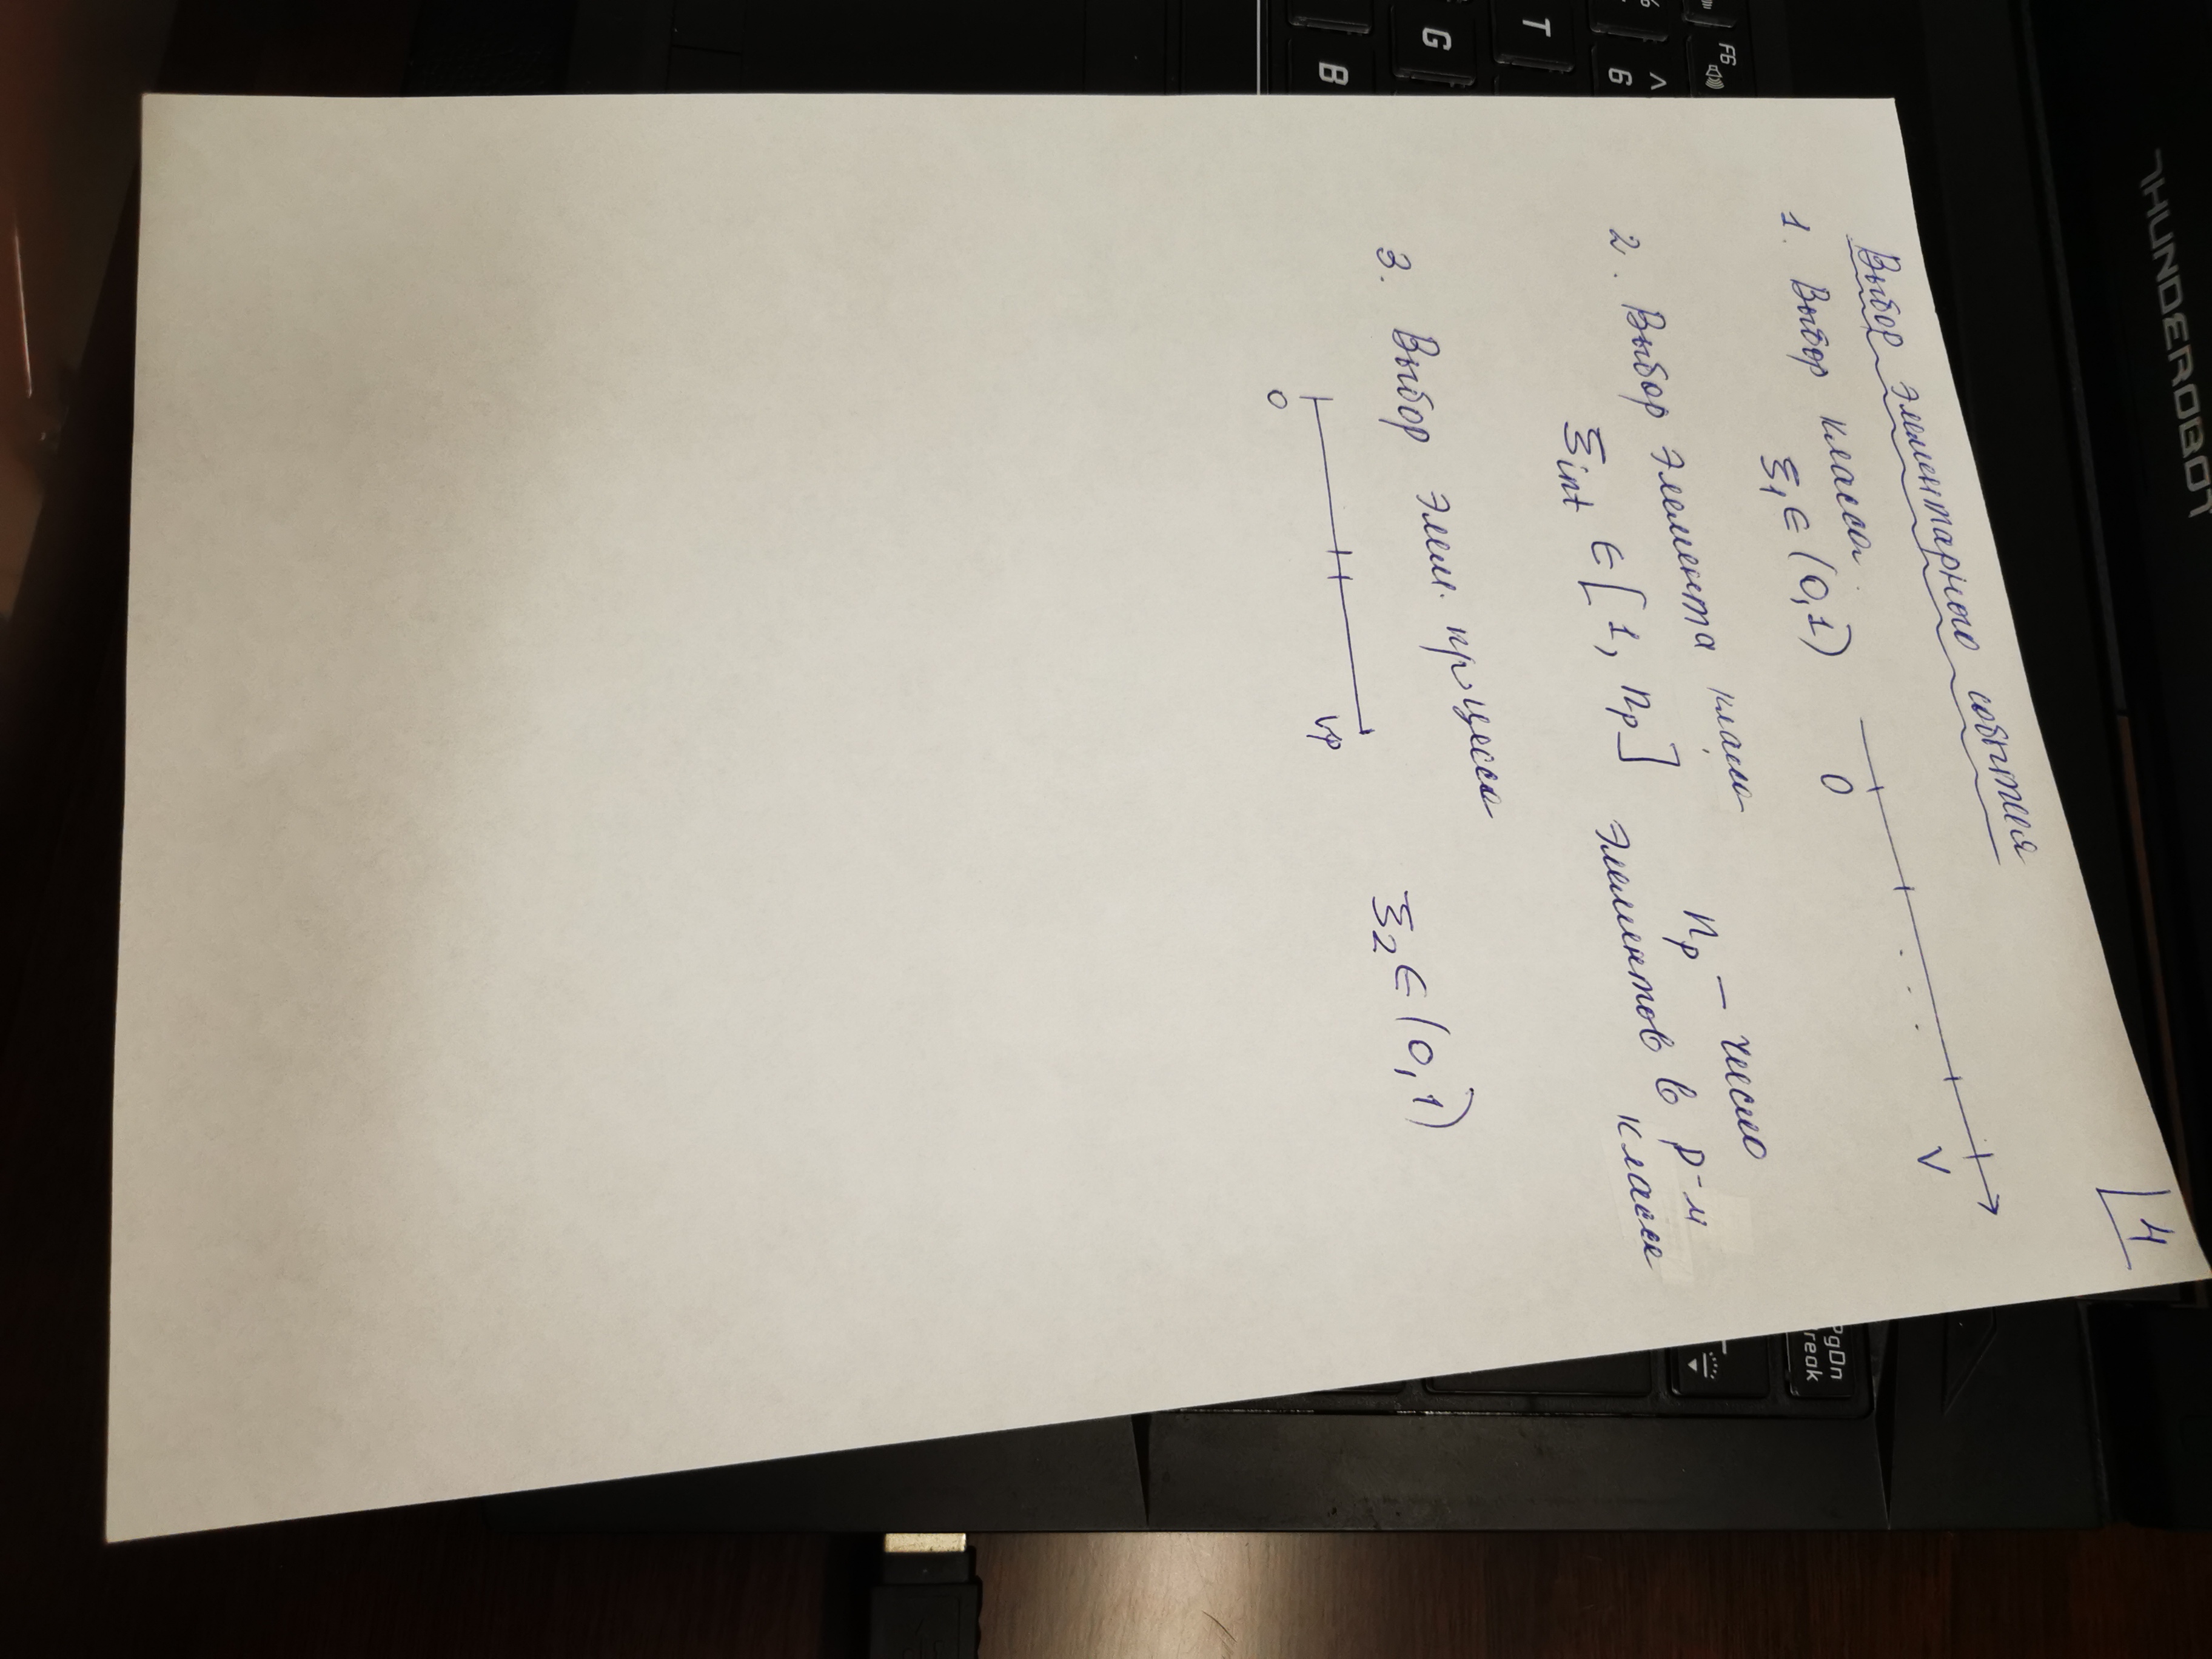 THUNDEROBOT
4
Выбор элементарного события
1. Выбор класса
ξ₁ ∈ (0,1)
0 V
2. Выбор элемента класса
ξint ∈ [1, np]
np – число
элементов в p-м
классе
3. Выбор элем. процесса
ξ₂ ∈ (0,1)
0 Vp
F6
^
6
T
G
B
PgDn